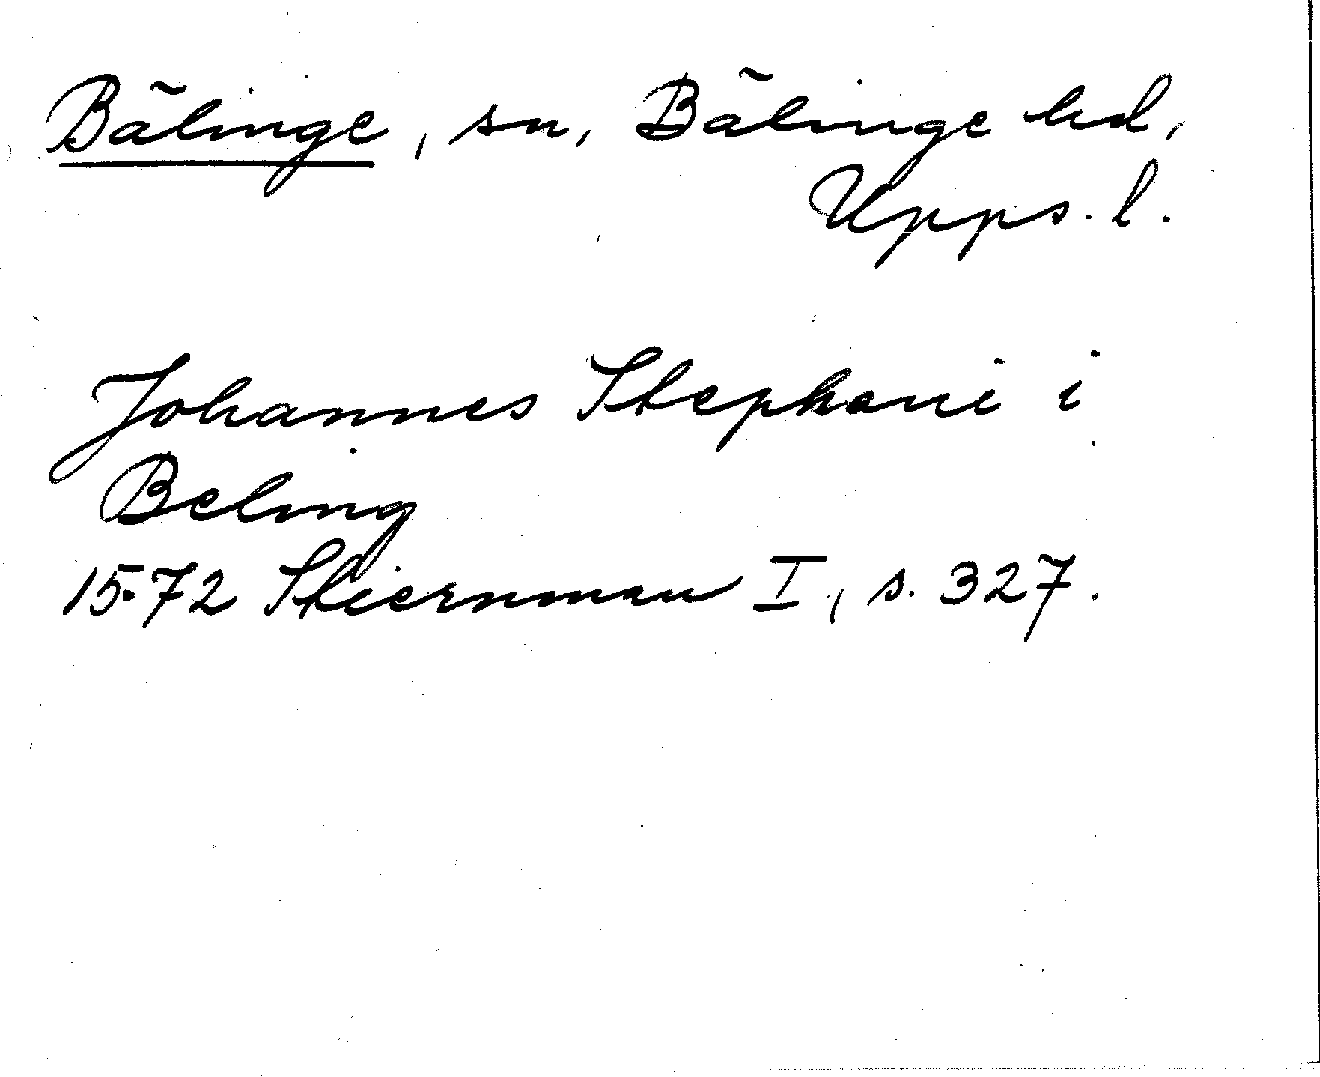 Bälinge, sn, Bälinge hd,
Upps. l.
Johannes Stephani i
Beling
1572 Stiernman I, s. 327.